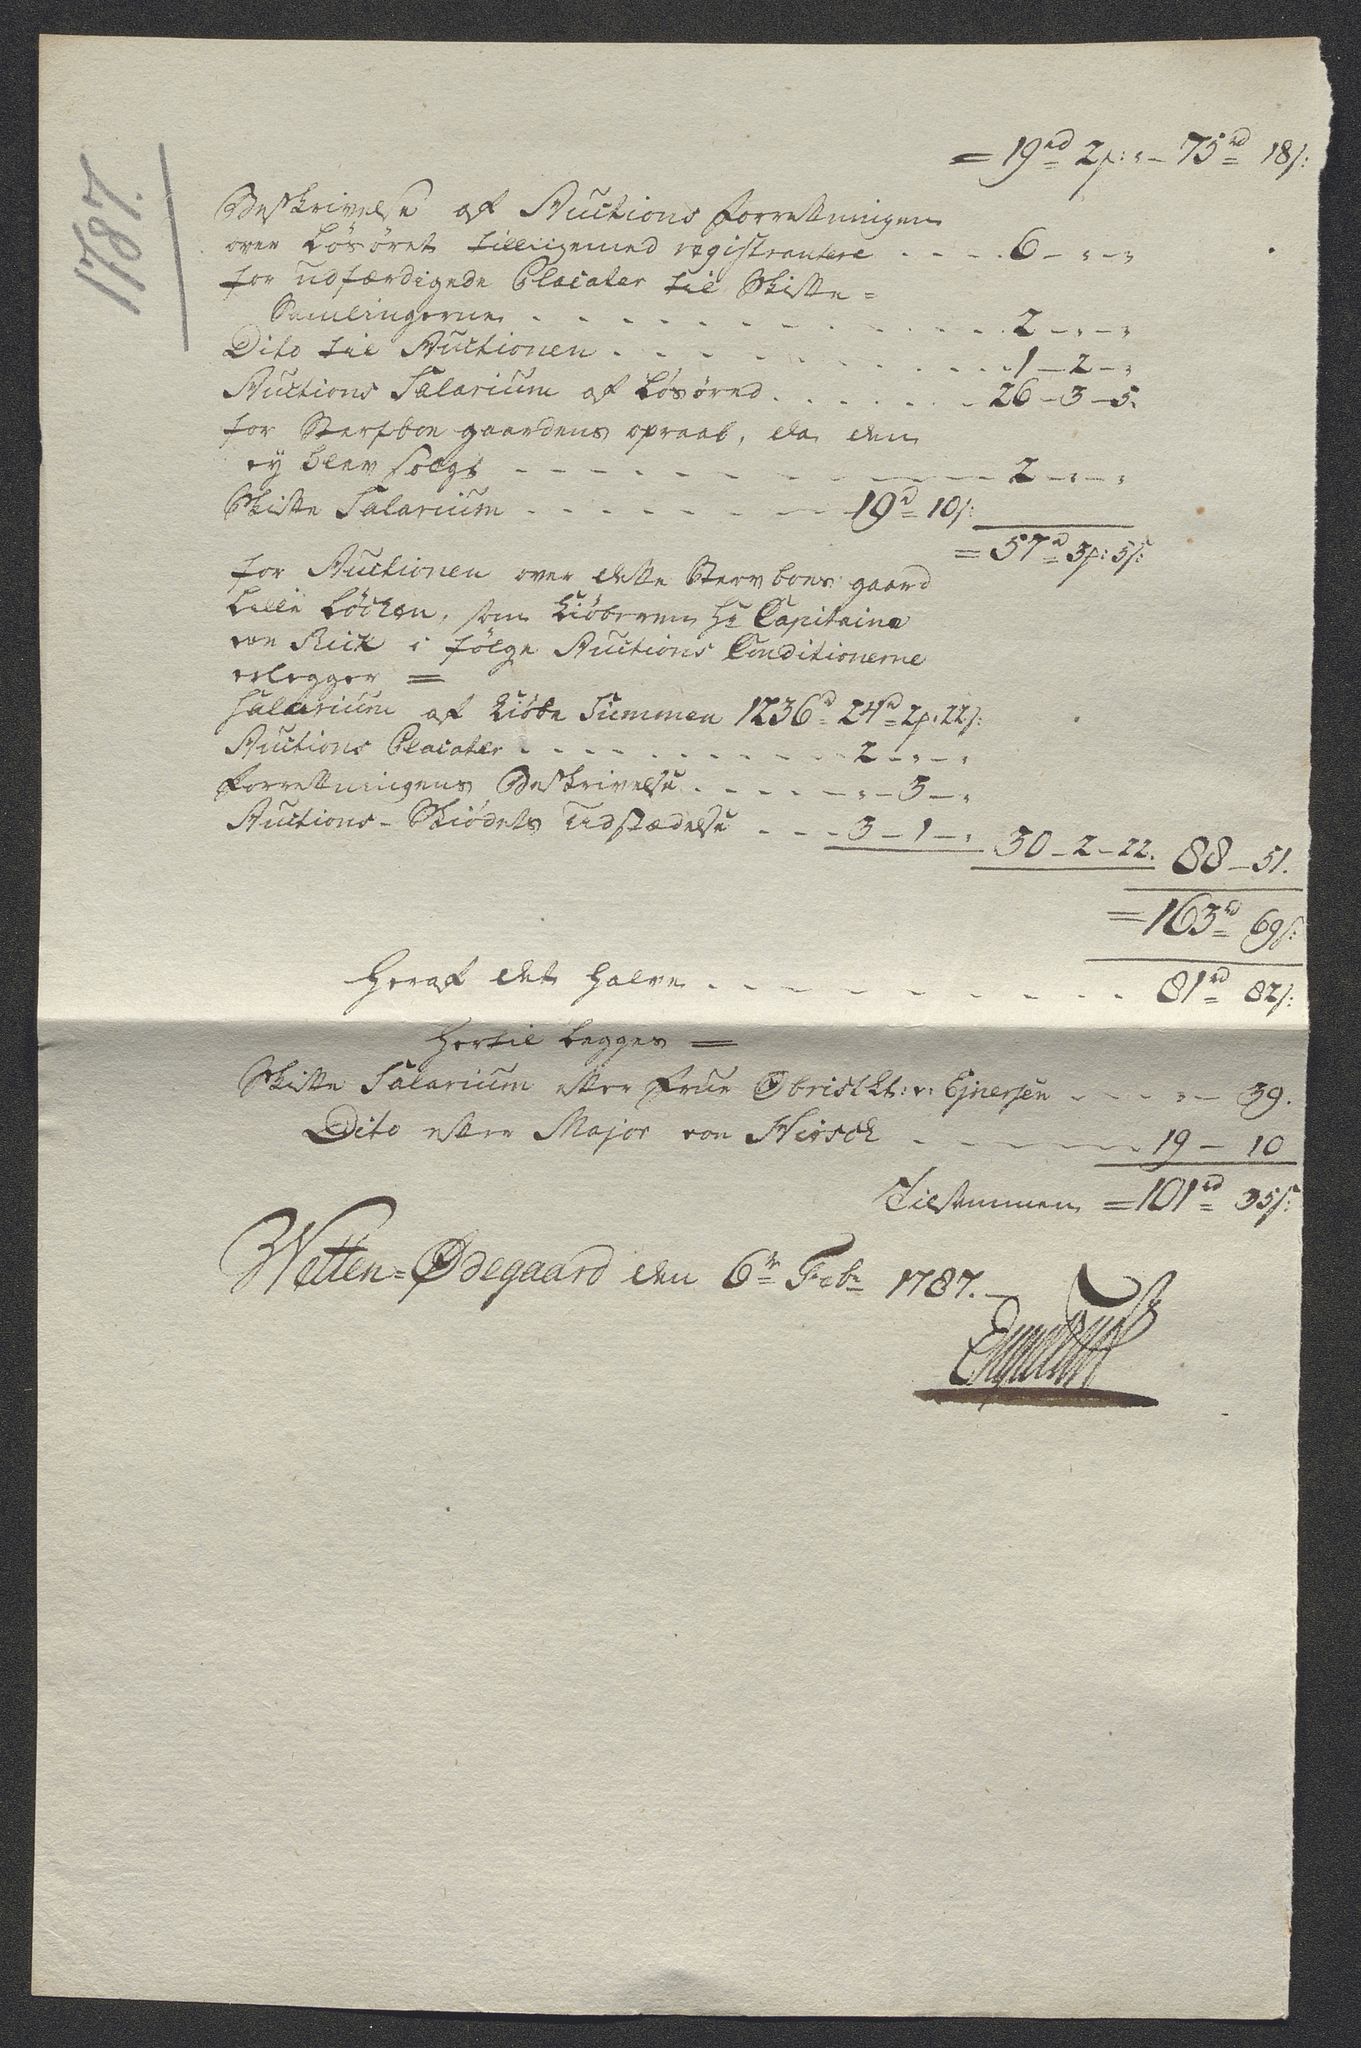 1787.
= 19rd 2p: „ — 75rd 18s:
Beskrivelse af Auctions forretningen
over Løsøret tilligemed registrantere . . . . 6 — „ — „
for udfærdigede Placater til Skifte =
Samlingerne . . . . . . . . . . . . . . 2 — „ — „
Dito til Auctionen . . . . . . . . . . 1 — 2 — „
Auctions Salarium af Løsøred . . . . . . 26 — 3 — 5.
for Sterfboe gaardens opraab, da den
ey blev solgt - - - - - - - - - - 2 — „ — „
Skifte Salarium - - - - - - - 19d 10s:
= 57d 3p: 5s:
for Auctionen over dette Stervboes gaard
Lille Løchen, som Kiøberen Hr Capitaine
von Rick i følge Auctions Conditionerne
erlegger =
Salarium af Kiøbe Summen 1236d 24rd 2p: 22s:
Auctions Placater . . . . . . . . . . . 2 — „ — „
forretningens Beskrivelse . . . . . . „ — 3 — „
Auctions - Skiødets Udstædelse . . . . 3 — 1 — „ 30 — 2 — 22. 88 — 51.
= 163rd 69s:
Heraf det halve . . . . . . . . . . . 81rd 82s:
Hertil legges =
Skifte Salarium efter Frue Obristlt: v: Ejnersen - - - - „ — 39.
Dito efter Major von Hirsch - - - - - - 19 — 10
Tilsammen = 101rd 35s:
Wetten = Ødegaard den 6te Febr 1787. —